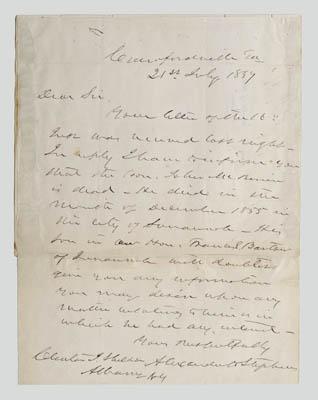 Crawfordville Ga
21st July 1859
Dear Sir
Your letter of the 16th
Inst was received last night -
In reply I have to inform you
that the Hon. John M.
is dead - He died in the
month of December 1855 in
the city of Savannah - His
son in law Hon. Francis S. Bartow
of Savannah will doubtless
give you any information
you may desire upon any
matter relating to business in
which he had any interest -
Yours Respectfully
Alexander H Stephens
Albany NY